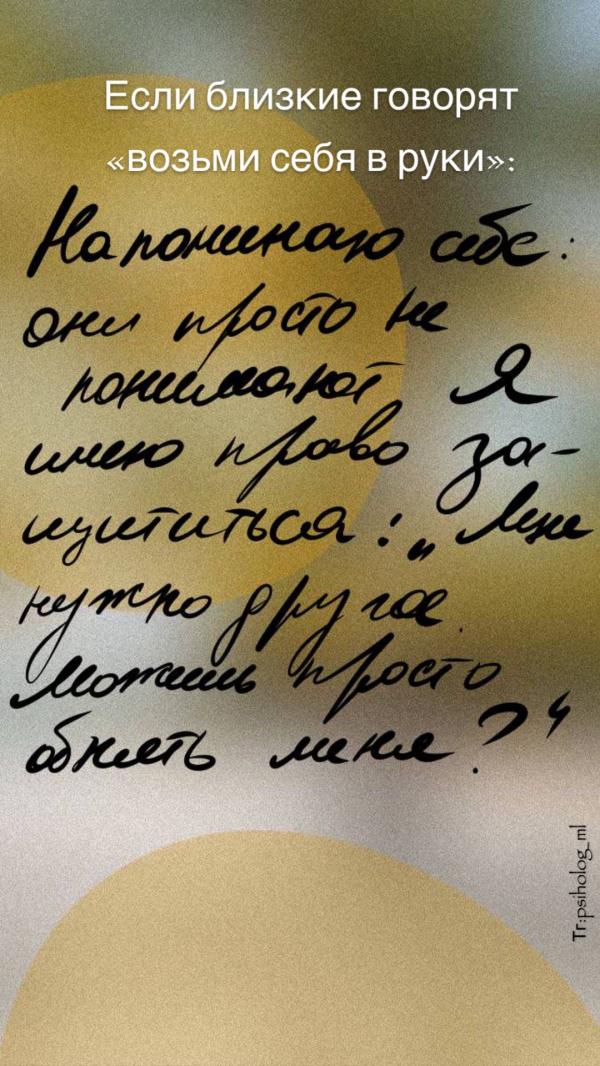 Если близкие говорят
«возьми себя в руки»:
Напоминаю себе:
они просто не
понимают Я
имею право за-
щититься: „Мне
нужно другое.
Можешь просто
обнять меня?“
Tr:psiholog_ml